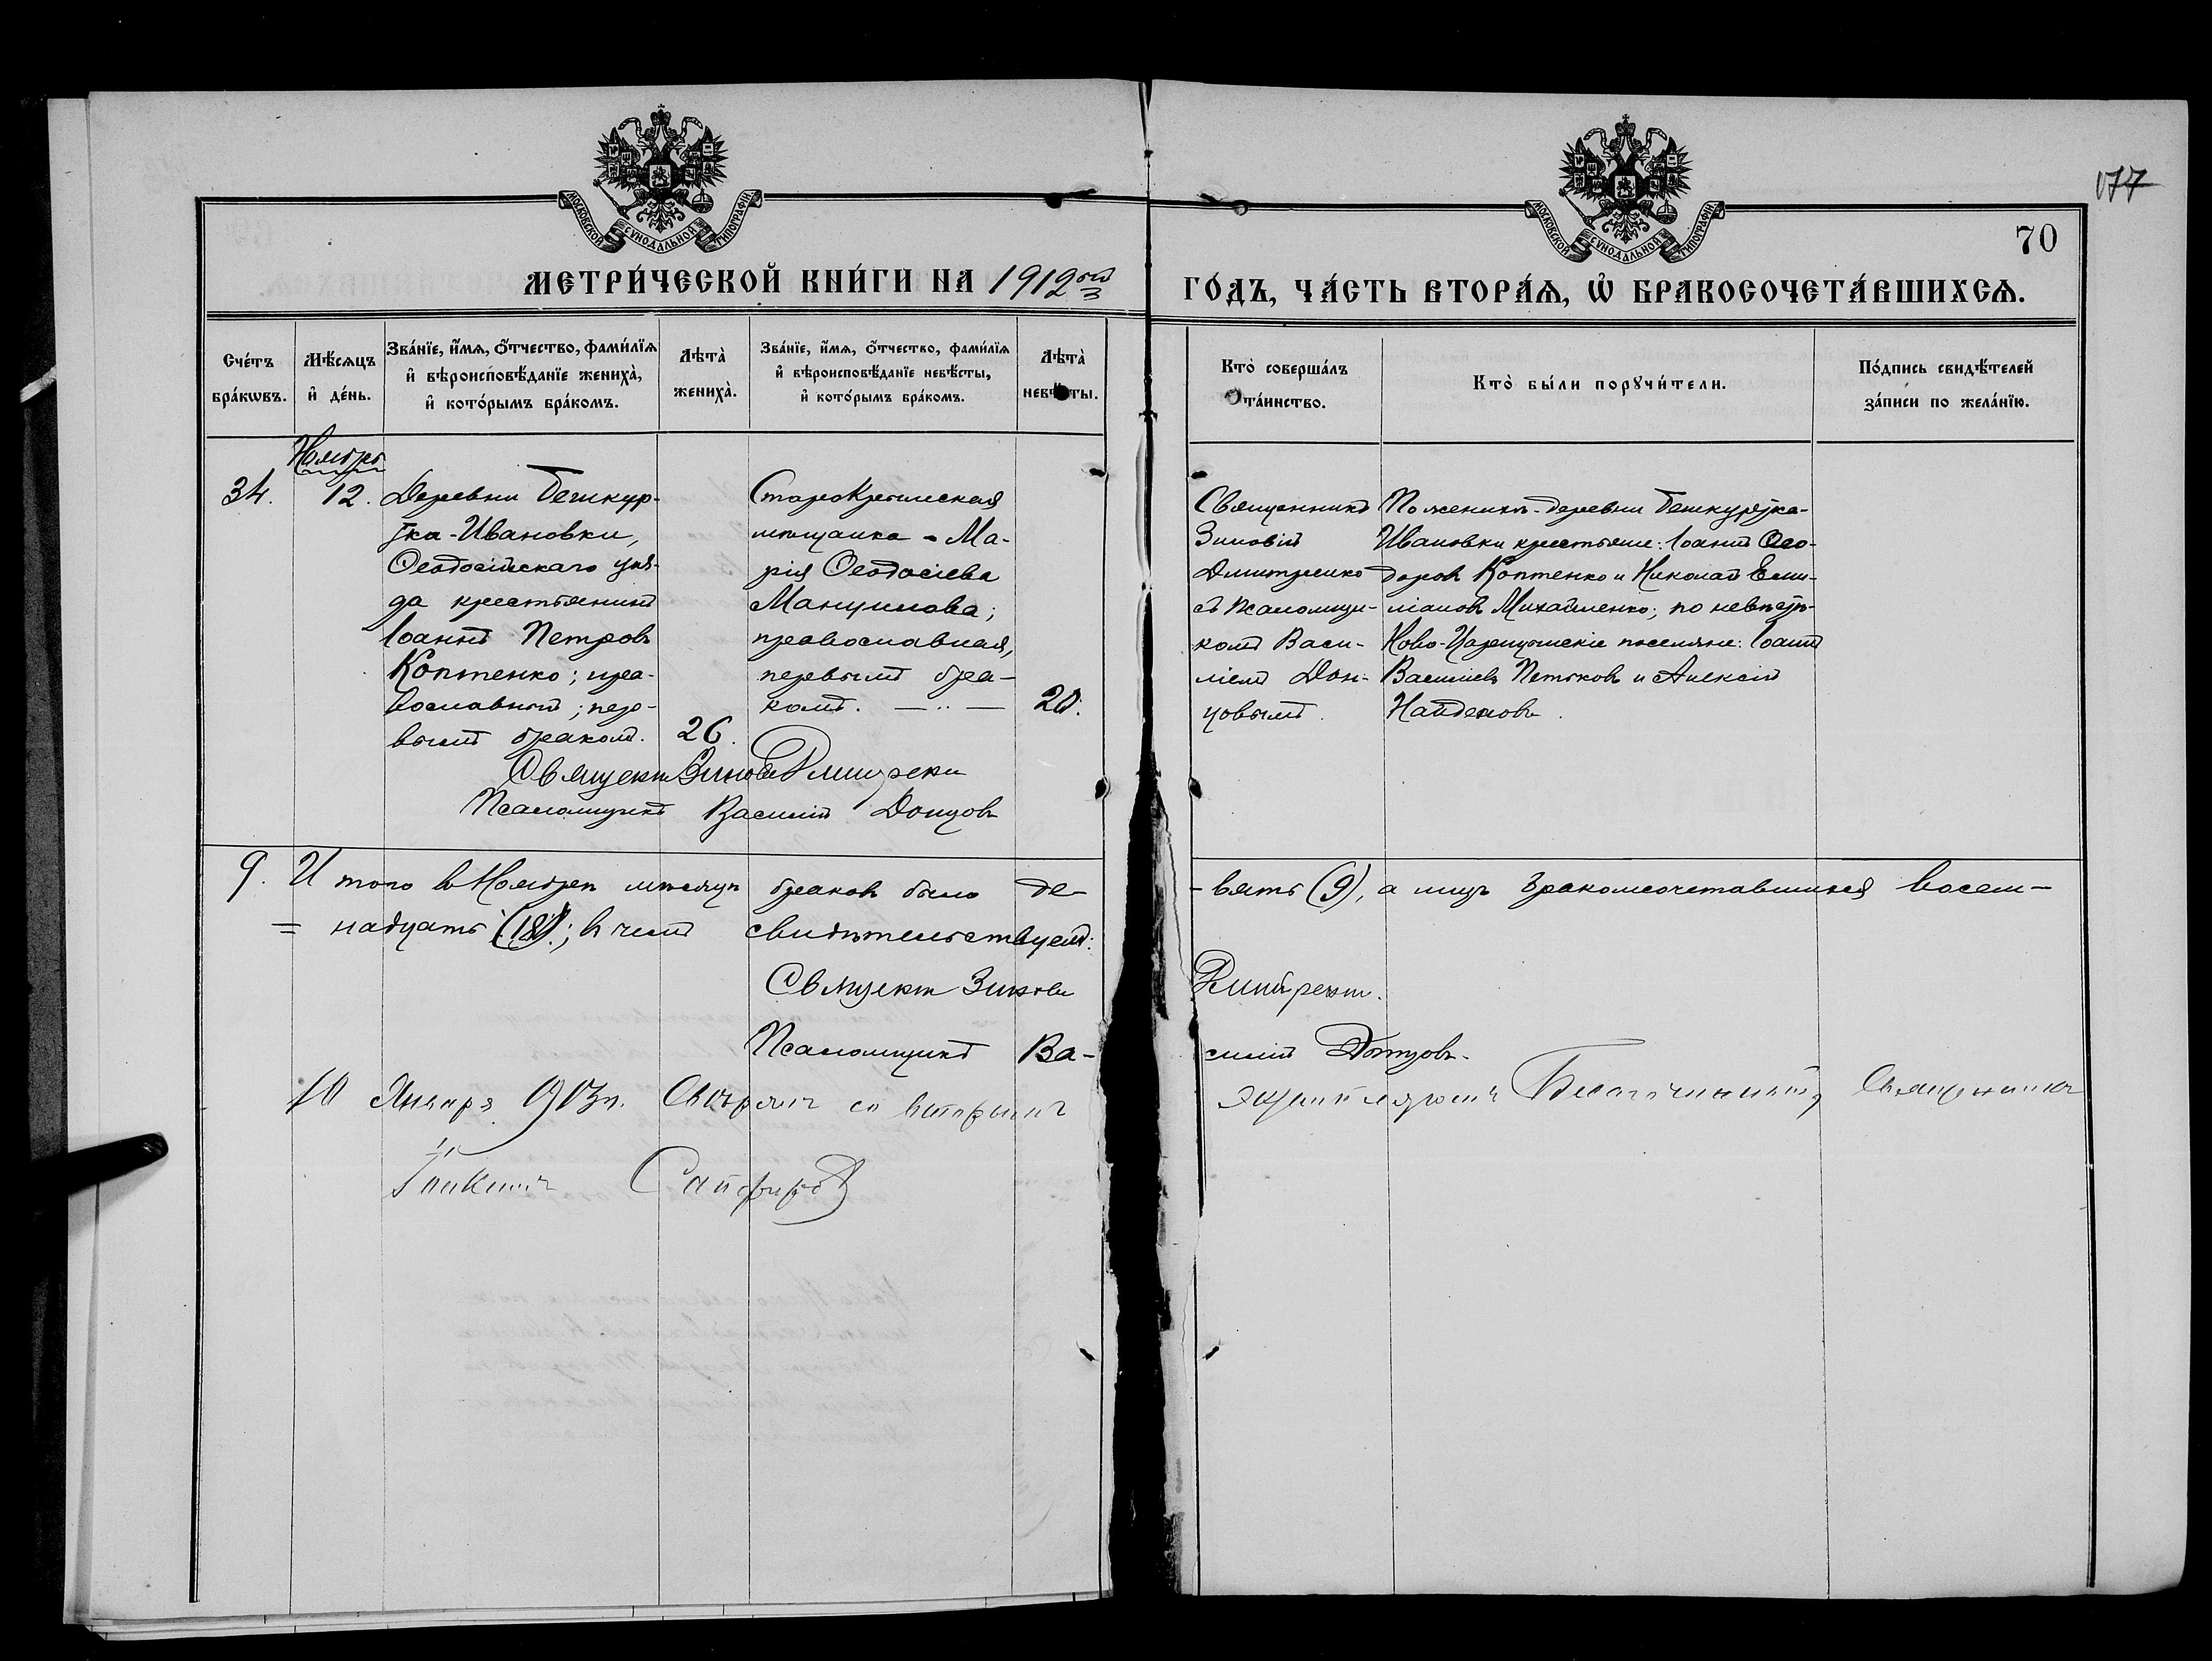 177
70
МОСКОВСКОЙ СѴНОДАЛЬНОЙ ТИПОГРАФІИ.
МОСКОВСКОЙ СѴНОДАЛЬНОЙ ТИПОГРАФІИ.
МЕТРИ́ЧЕСКОЙ КНИ́ГИ НА 1912ый ГО́ДЪ, ЧА́СТЬ ВТОРА́Ѧ, Ѡ҆ БРАКОСОЧЕТА́ВШИХСѦ.
Сче́тъ бра́кѡвъ.
Мѣ́сяцъ и҆ де́нь.
Зва́нїе, и҆́мѧ, ѻ҆́тчество, фами́лїѧ и҆ вѣроисповѣ́данїе жениха̀, и҆ кото́рымъ бра́комъ.
Лѣта̀ жениха̀.
Зва́нїе, и҆́мѧ, ѻ҆́тчество, фами́лїѧ и҆ вѣроисповѣ́данїе невѣ́сты, и҆ кото́рымъ бра́комъ.
Лѣта̀ невѣ́сты.
Кто̀ соверша́лъ та́инство.
Кто̀ бы́ли порꙋчи́тели.
По́дпись свидѣ́телей за́писи по жела́нїю.
Ноябрь
34.
12.
Деревни Бешкур-
тка-Ивановки,
Ѳеодосійскаго уѣз-
да крестьянинъ
Іоаннъ Петровъ
Коптенко; пра-
вославный; пер-
вымъ бракомъ.
26.
Старокрымская
мѣщанка - Ма-
рія Ѳеодосіева
Манцинова;
православная,
первымъ бра-
комъ.
20.
Священникъ
Зиновій
Дмитренко
съ псаломщи-
комъ Васи-
ліемъ Дон-
цовымъ.
По женихѣ - деревни Бешкуртка-
Ивановки крестьяне: Іоаннъ Ѳео-
доровъ Коптенко и Николай Еми-
ліановъ Михайленко; по невѣстѣ-
Ново-Царицынскіе поселяне: Іоаннъ
Василіевъ Петковъ и Алексій
Найденовъ.
Священ Зиновій Дмитренко
Псаломщикъ Василій Донцовъ
9. Итого въ Ноябрѣ мѣсяцѣ браковъ было де-
вять (9), а лицъ бракомсочетавшихся восем-
надцать (18); въ чемъ свидѣтельствуемъ:
Священ Зиновій Дмитренко.
Псаломщикъ Василій Донцовъ.
10 Января 1913 г. Свѣрялъ со вторымъ экземпляромъ Благочинный, Священникъ
Іоакимъ Сапфировъ